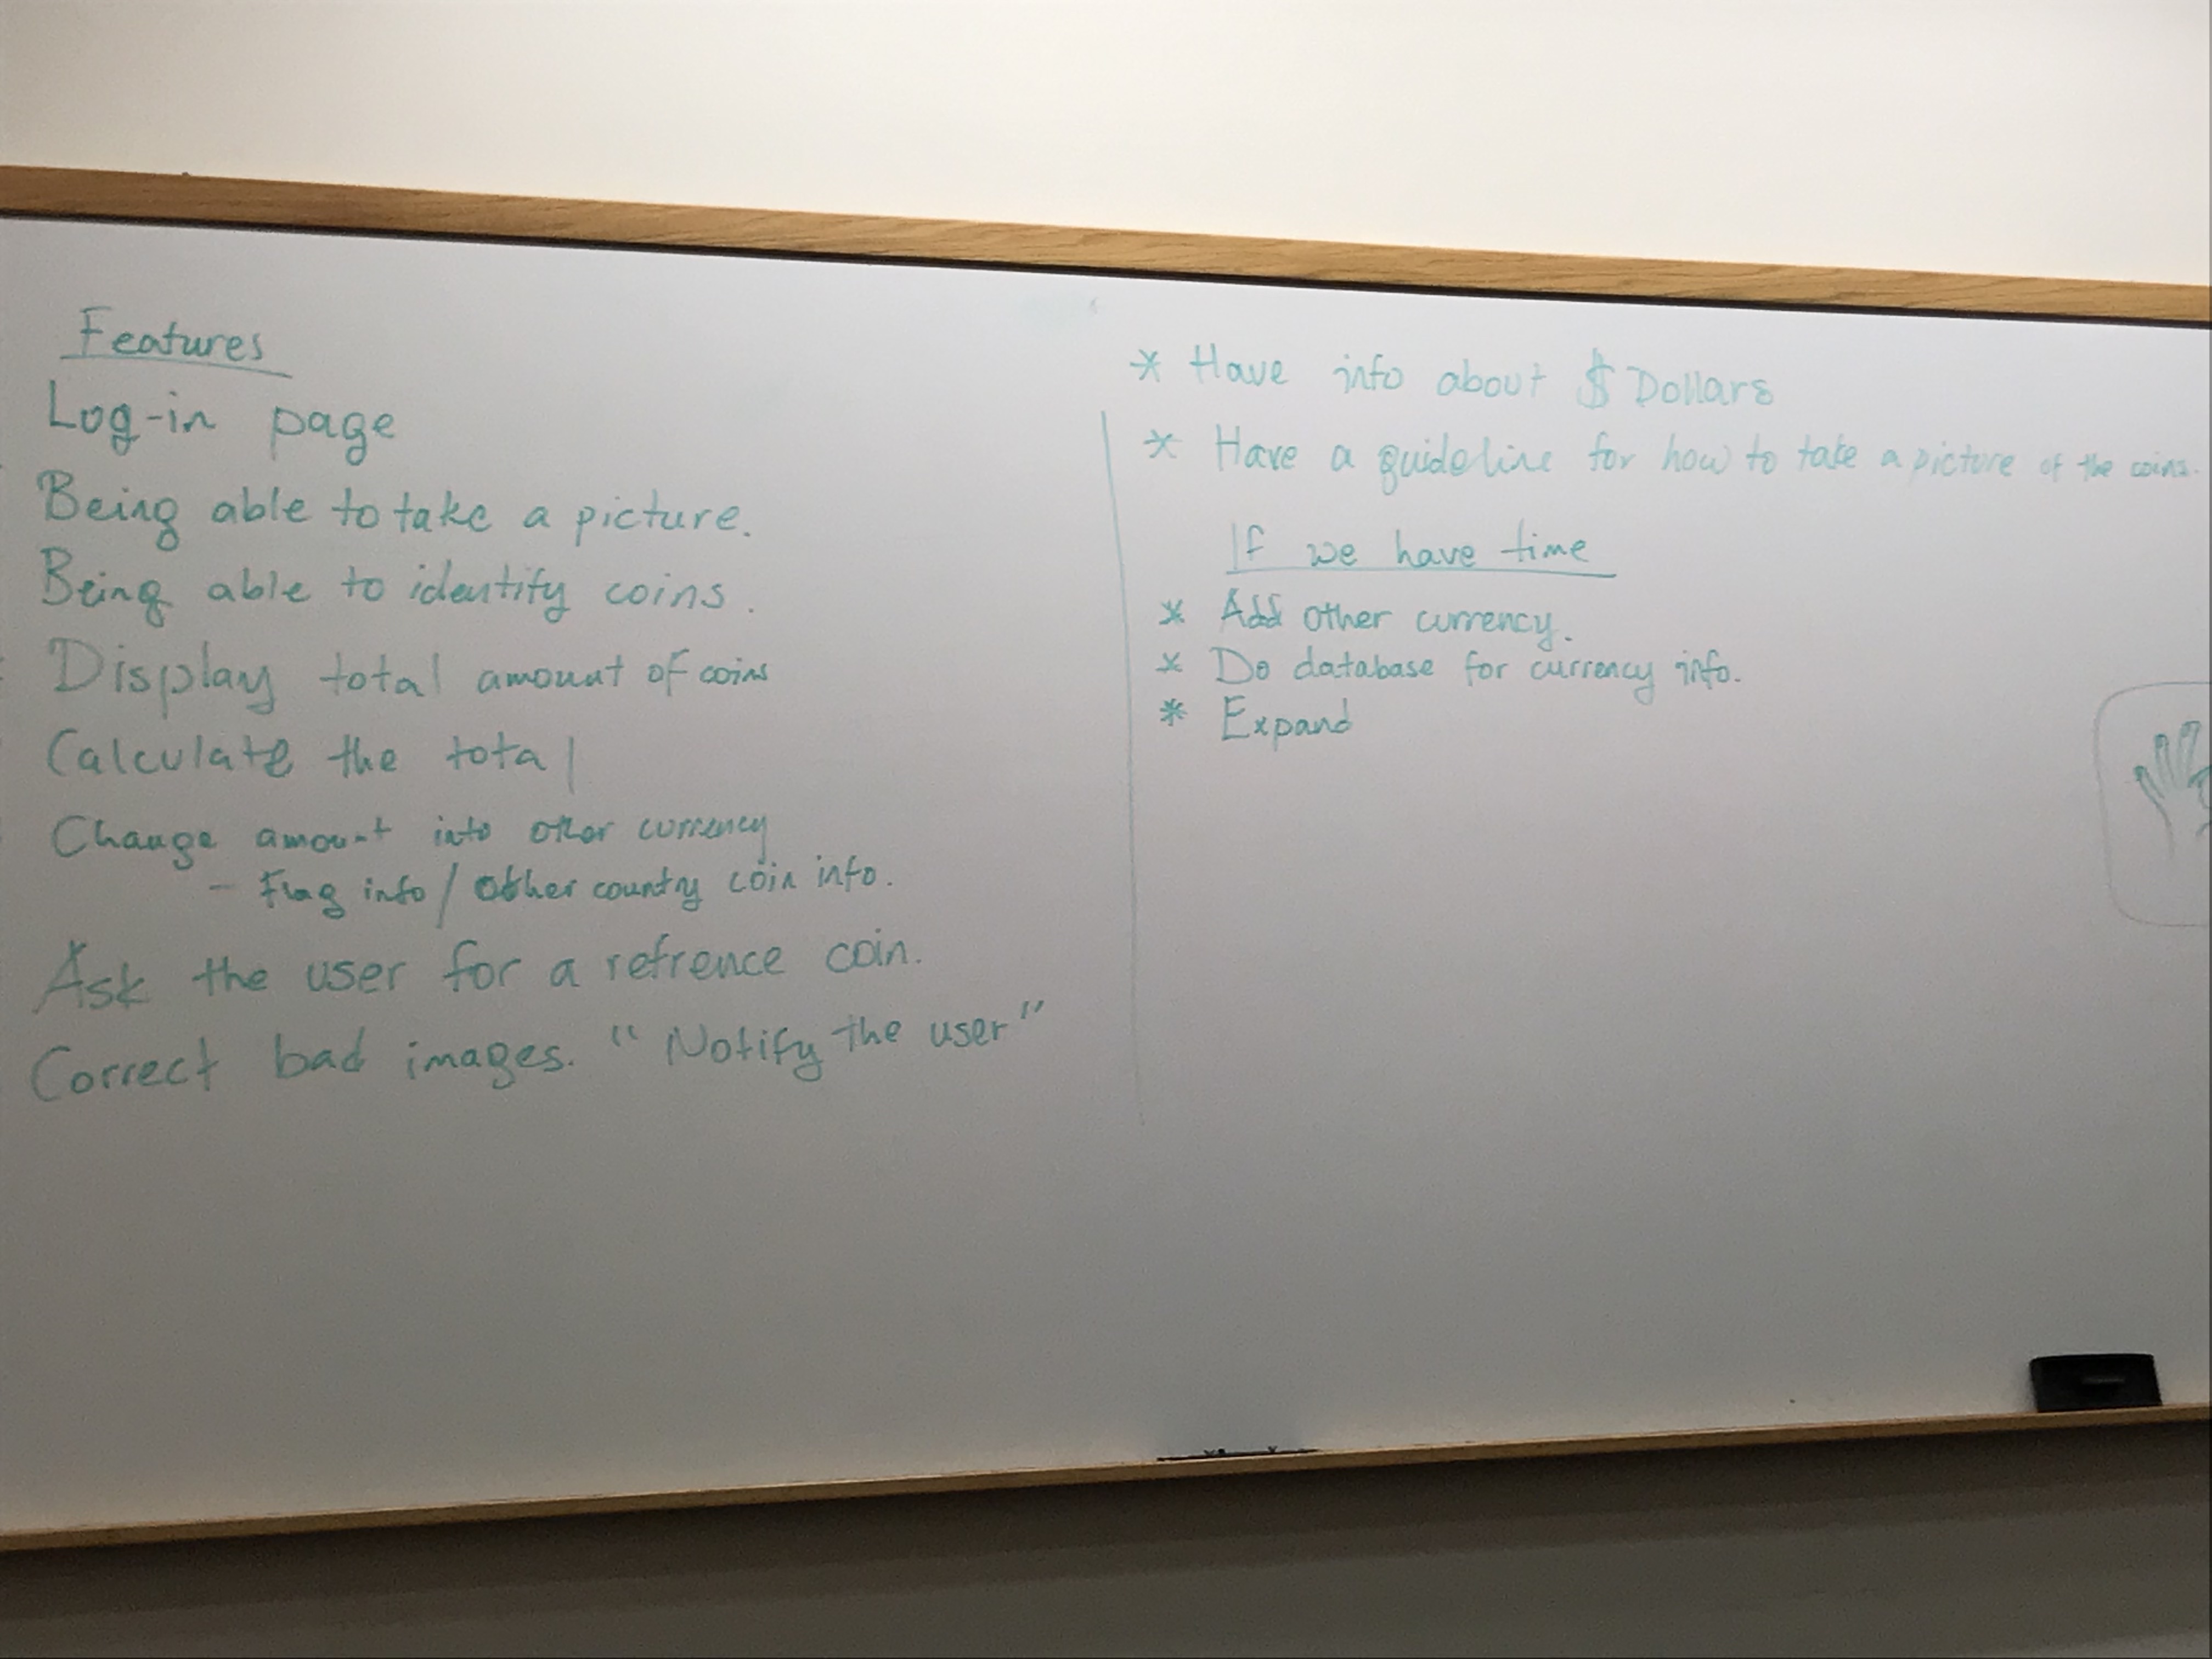 Features
Log-in page
Being able to take a picture.
Being able to identify coins.
Display total amount of coins
Calculate the total
Change amount into other currency
- Flag info / other country coin info.
Ask the user for a refrence coin.
Correct bad images. "Notify the user"
* Have info about $ Dollars
* Have a guideline for how to take a picture of the coins.
If we have time
* Add other currency.
* Do database for currency info.
* Expand